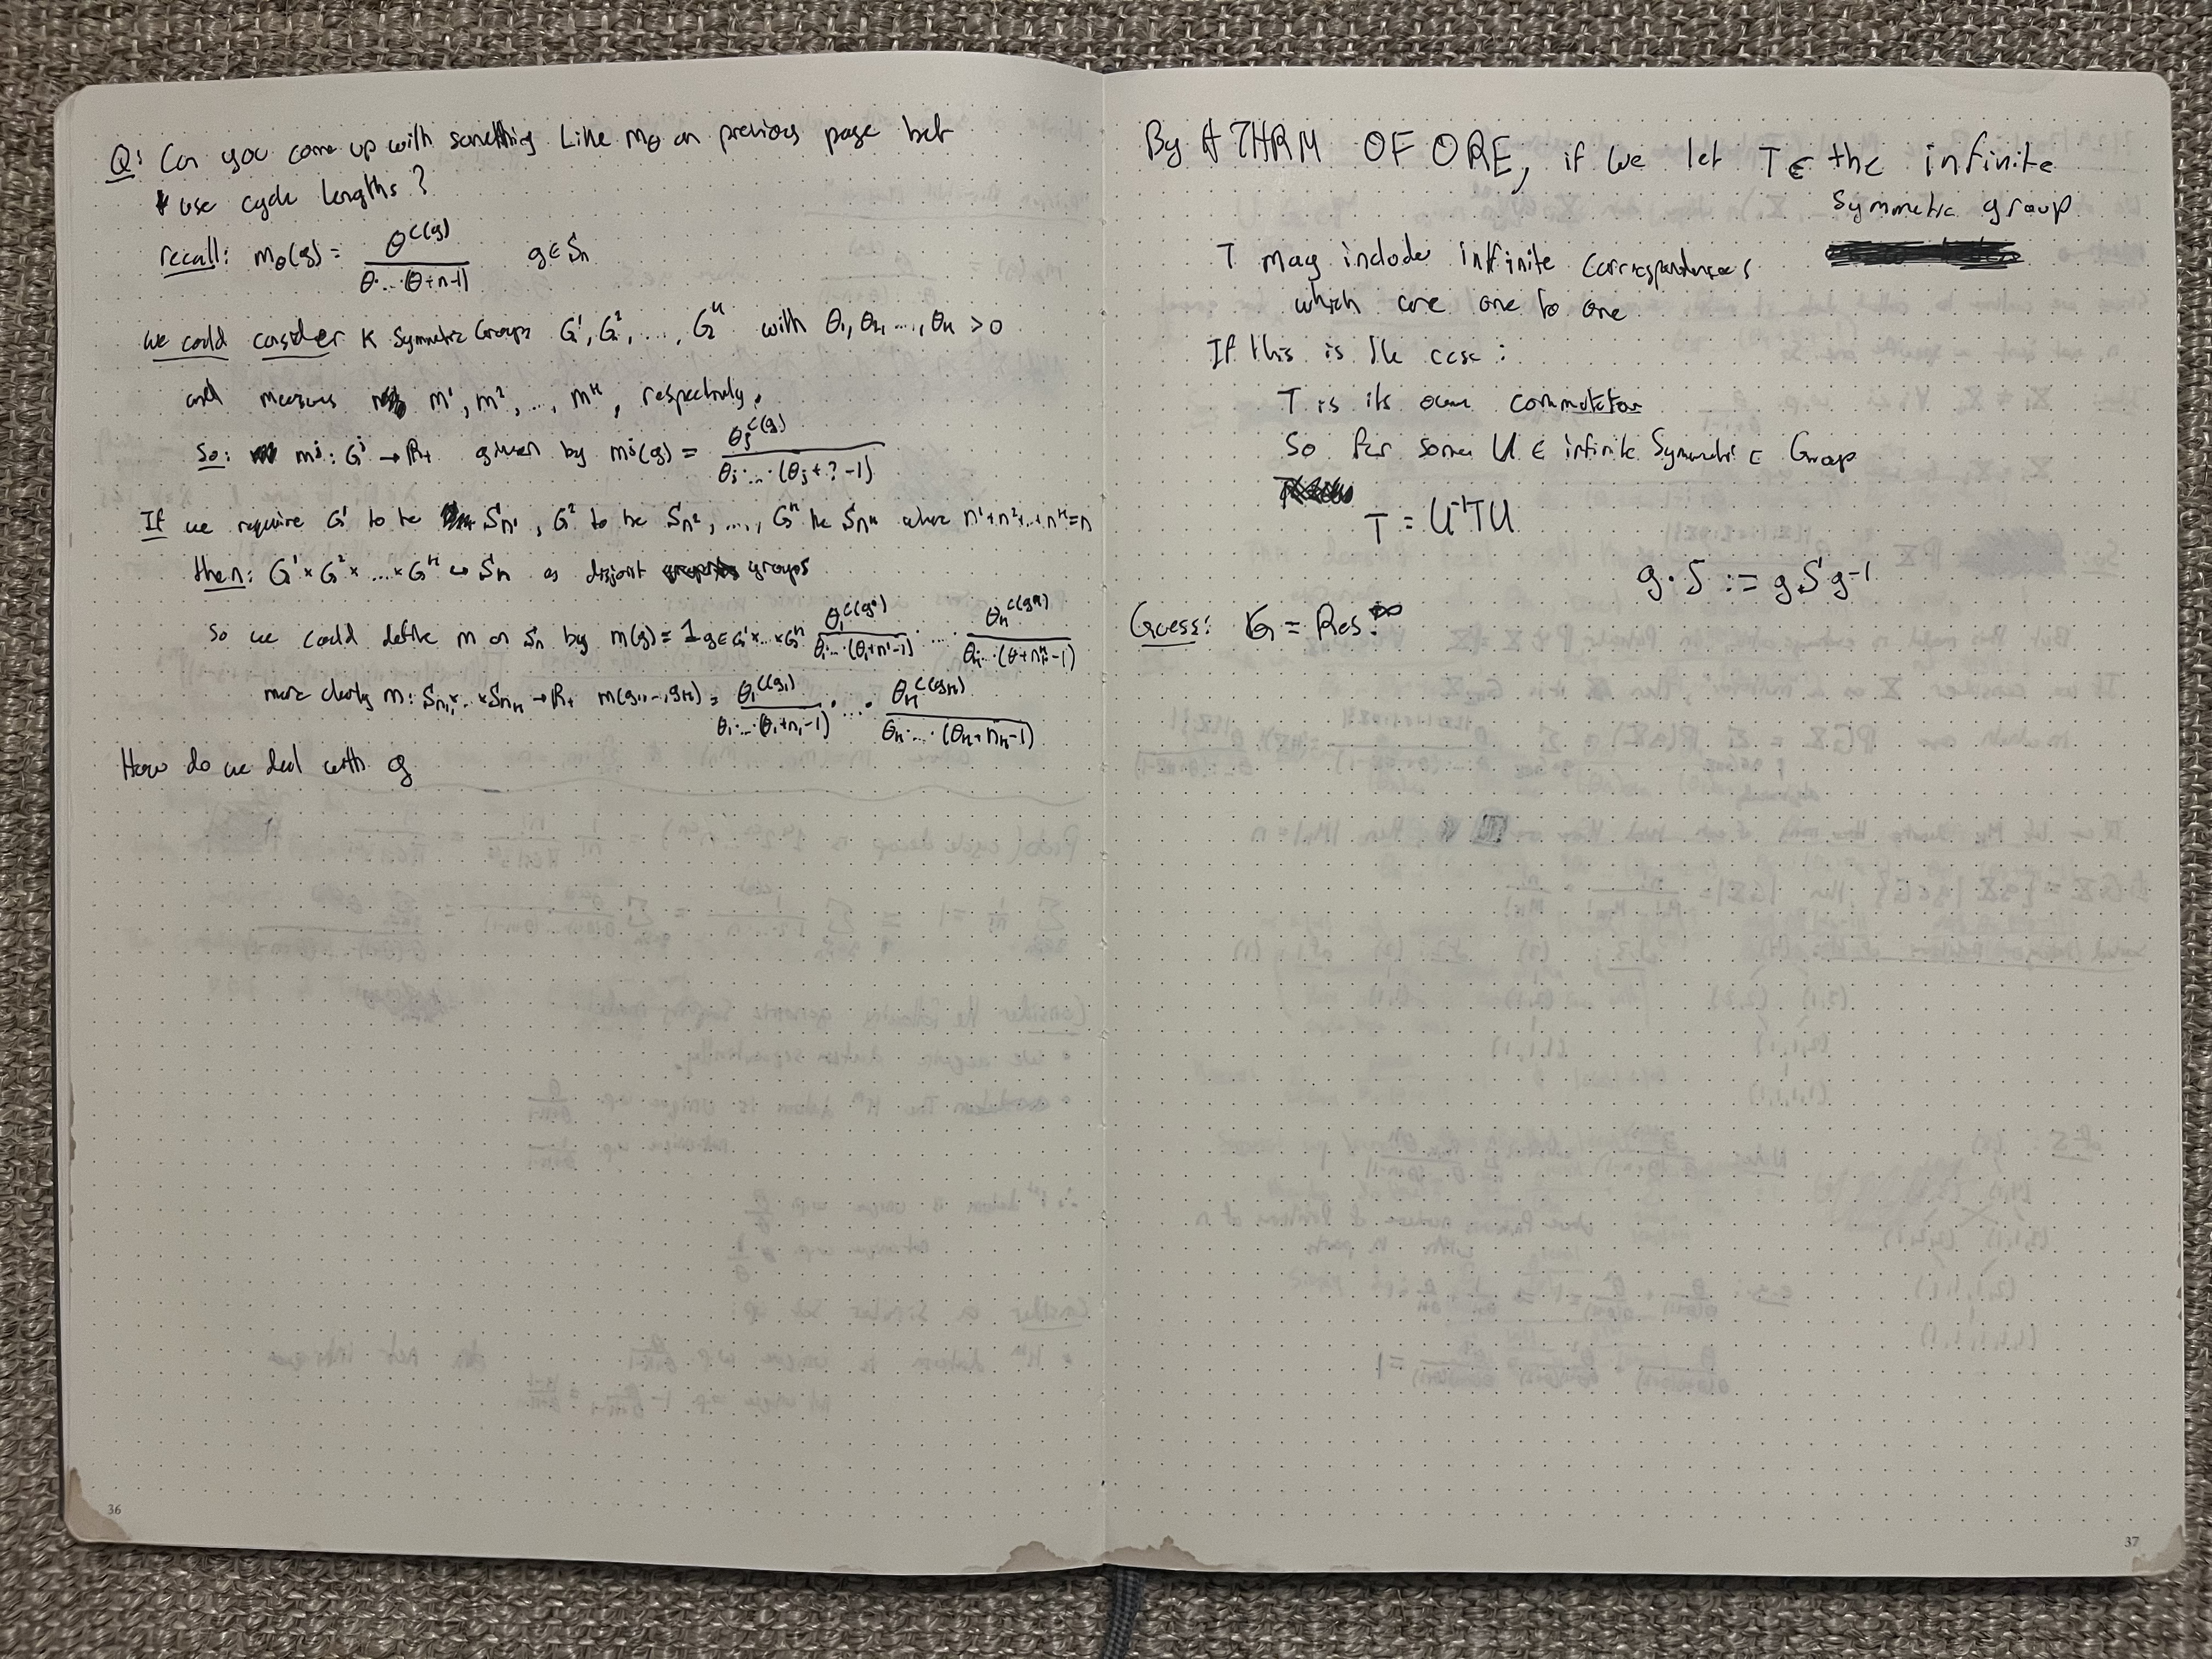 Q: Can you come up with something like m_θ on previous page but
use cycle lengths?
recall: m_θ(g) = θ^{c(g)} / θ...(θ+n-1)   g ∈ S_n
We could consider K Symmetric Groups G^1, G^2, ..., G^K with θ_1, θ_2, ..., θ_K > 0
and measures m^1, m^2, ..., m^K, respectively.
So: m^j: G^j → R_+ given by m^j(g) = θ_j^{c(g)} / θ_j...(θ_j+?-1)
If we require G^1 to be S_{n^1}, G^2 to be S_{n^2}, ..., G^K be S_{n^K} where n^1+n^2+...+n^K=n
then: G^1 × G^2 × .... × G^K ↪ S_n as disjoint groups
So we could define m on S_n by m(g) = 1_{g∈G^1×...×G^K} θ_1^{c(g^1)} / θ_1...(θ_1+n^1-1) .... θ_K^{c(g^K)} / θ_K...(θ+n^K-1)
more clearly m: S_{n_1}×...×S_{n_K} → R_+ m(g_1,...,g_K) = θ_1^{c(g_1)} / θ_1...(θ_1+n_1-1) · ... · θ_K^{c(g_K)} / θ_K...(θ_K+n_K-1)
How do we deal with g
36
By A THRM OF ORE, if we let T ∈ the infinite
symmetric group
T may include infinite correspondences
which are one to one
If this is the case:
T is its own commutator
So for some U ∈ infinite Symmetric Group
T = U^{-1}TU
g · S := g S g^{-1}
Guess: G = Res
37